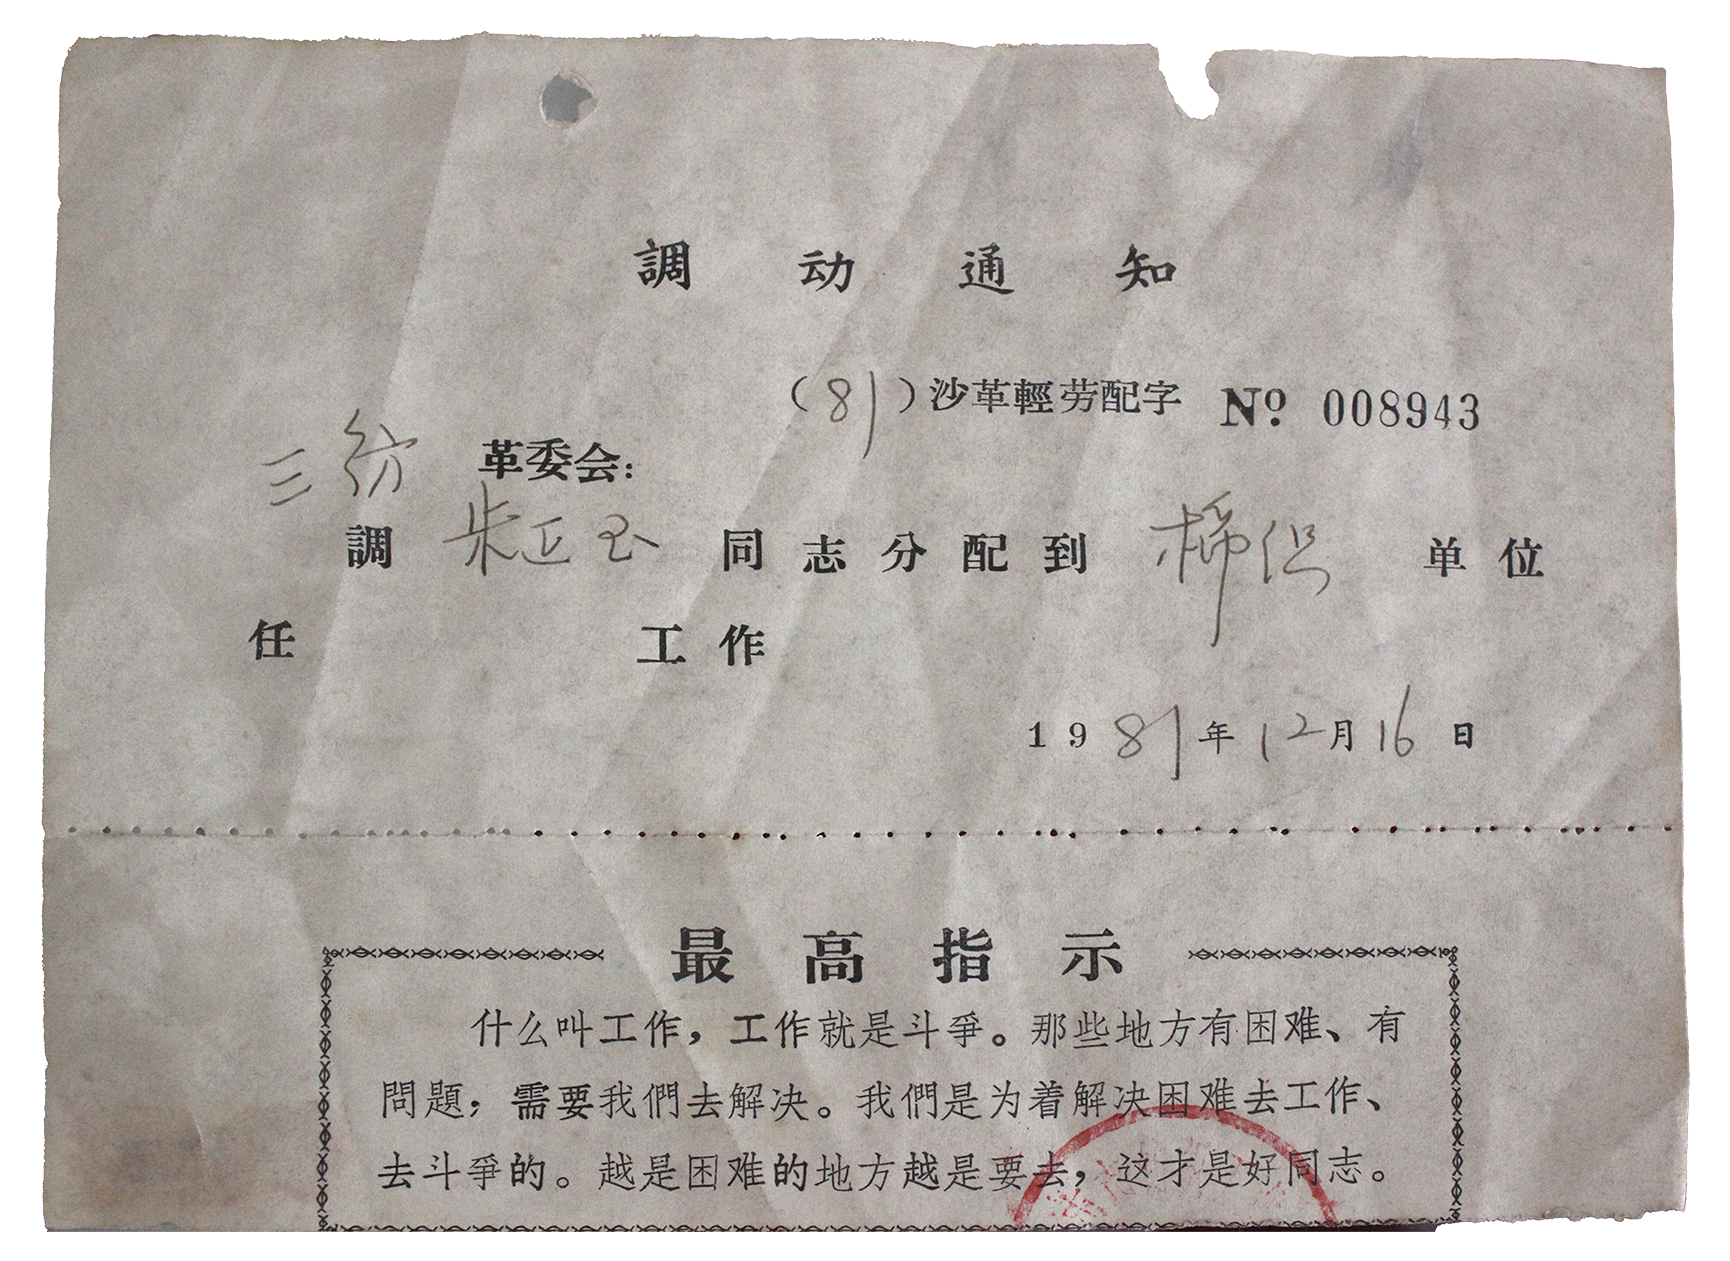 調动通知
（81）沙革輕劳配字 № 008943
三纺 革委会：
調 朱正玉 同志分配到 单位
任 工作
1981年12月16日
最高指示
什么叫工作，工作就是斗爭。那些地方有困难、有
問題，需要我們去解决。我們是为着解决困难去工作、
去斗爭的。越是困难的地方越是要去，这才是好同志。